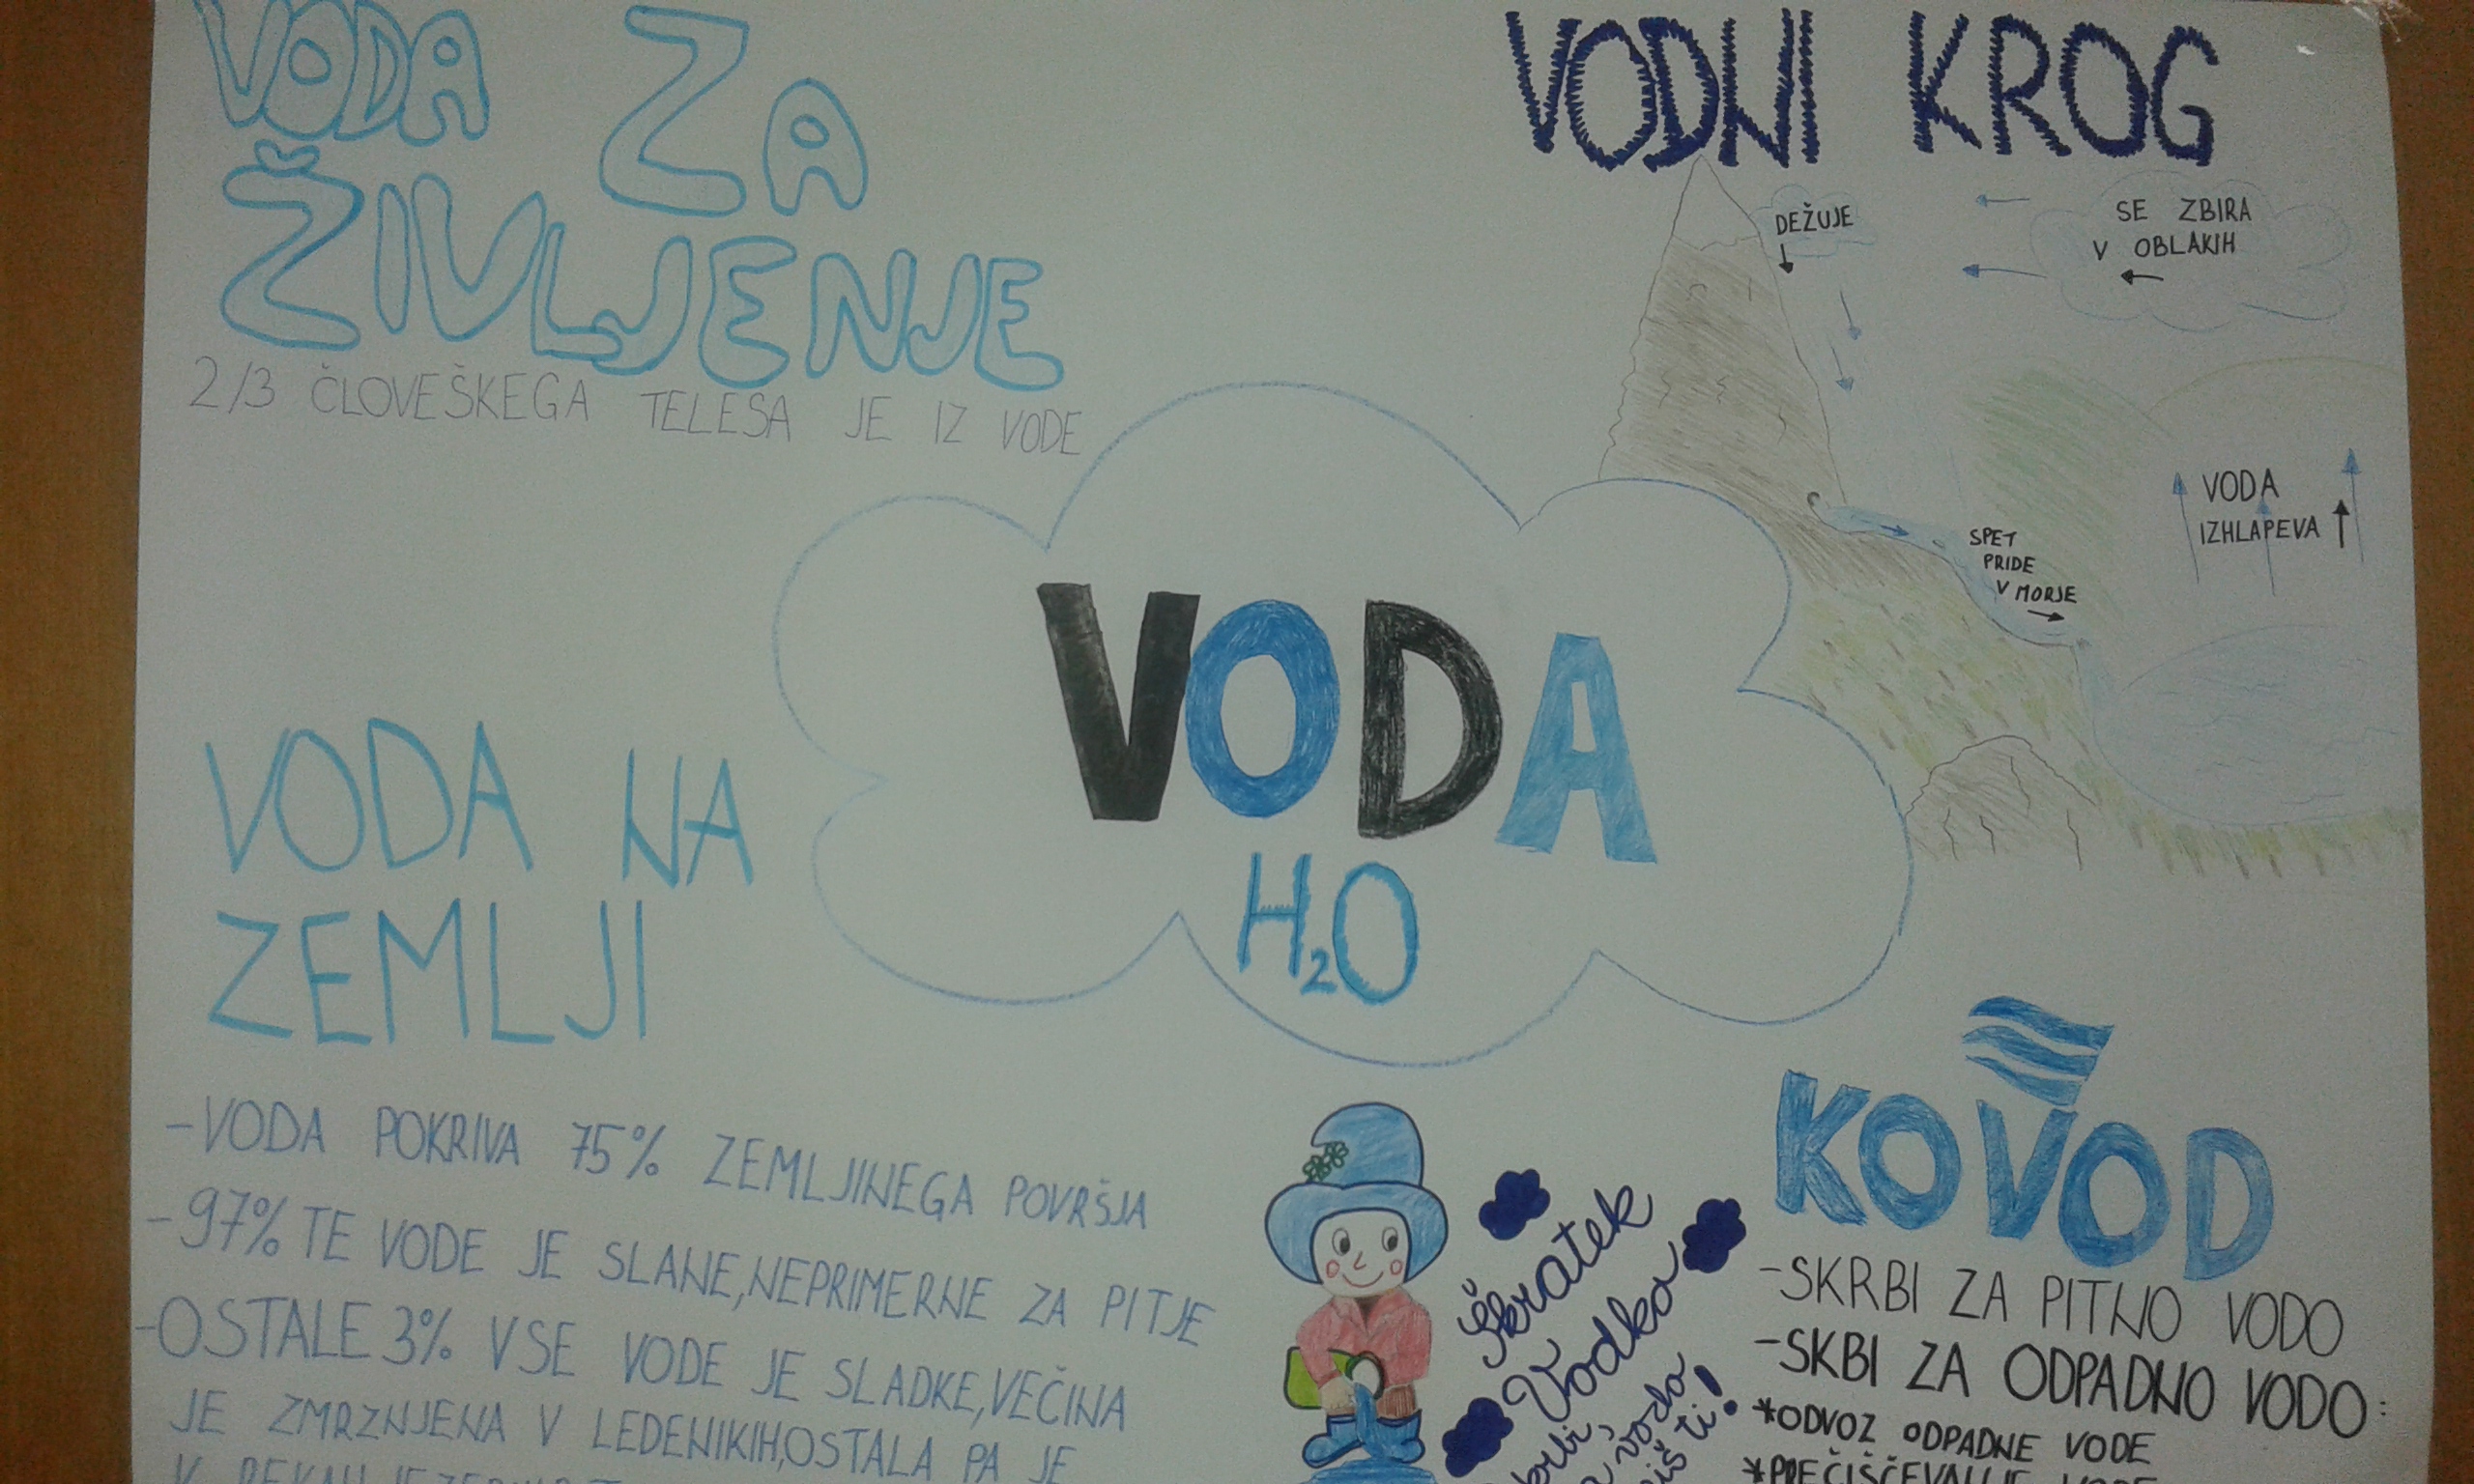 VODA ZA
ŽIVLJENJE
2/3 ČLOVEŠKEGA TELESA JE IZ VODE
VODNI KROG
DEŽUJE
SE ZBIRA
V OBLAKIH
VODA
IZHLAPEVA
SPET
PRIDE
V MORJE
VODA
H₂O
VODA NA
ZEMLJI
-VODA POKRIVA 75% ZEMLJINEGA POVRŠJA
-97% TE VODE JE SLANE, NEPRIMERNE ZA PITJE
-OSTALE 3% VSE VODE JE SLADKE, VEČINA
JE ZMRZNJENA V LEDENIKIH, OSTALA PA JE
V REKAH
Škratek
Vodko
voda
ti!
KOVOD
-SKRBI ZA PITNO VODO
-SKBI ZA ODPADNO VODO:
*ODVOZ ODPADNE VODE
*PREČIŠČEVANJE VODE